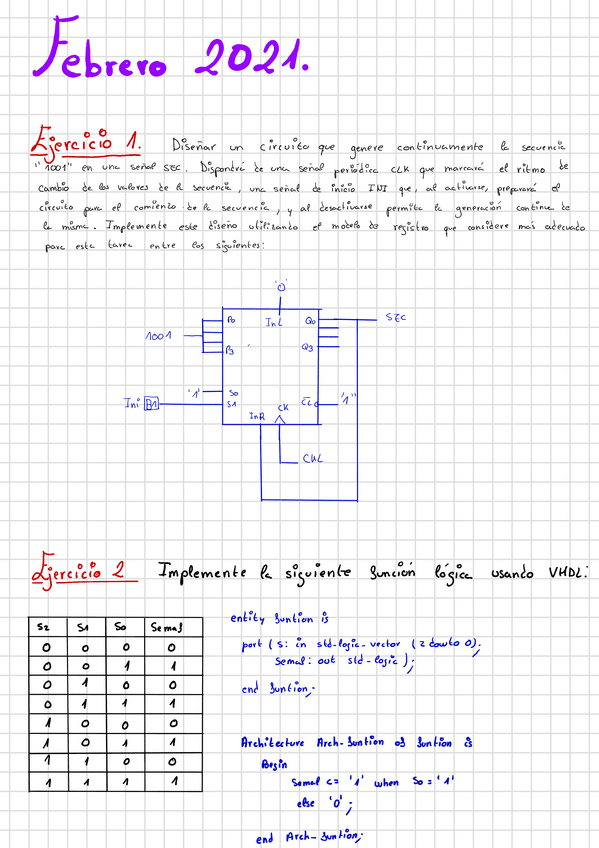 Febrero 2021.
Ejercicio 1. Diseñar un circuito que genere continuamente la secuencia
"1001" en una señal SEC. Dispondrá de una señal periódica CLK que marcará el ritmo de
cambio de los valores de la secuencia, una señal de inicio INI que, al activarse, preparará el
circuito para el comienzo de la secuencia, y al desactivarse permita la generación continua de
la misma. Implemente este diseño utilizando el modelo de registro que considere mas adecuado
para esta tarea entre los siguientes:
'0'
P0 InL Q0 SEC
1001
P3 Q3
'1' S0
Ini B1 S1 CL "1"
InR CK
CLK
Ejercicio 2 Implemente la siguiente función lógica usando VHDL:
S2 S1 S0 Semaf
0 0 0 0
0 0 1 1
0 1 0 0
0 1 1 1
1 0 0 0
1 0 1 1
1 1 0 0
1 1 1 1
entity funtion is
port (s: in std-logic-vector (2 dowto 0);
Semaf: out std-logic);
end funtion;
Architecture Arch-funtion of funtion is
Begin
Semaf <= '1' when S0 = '1'
else '0';
end Arch-funtion;